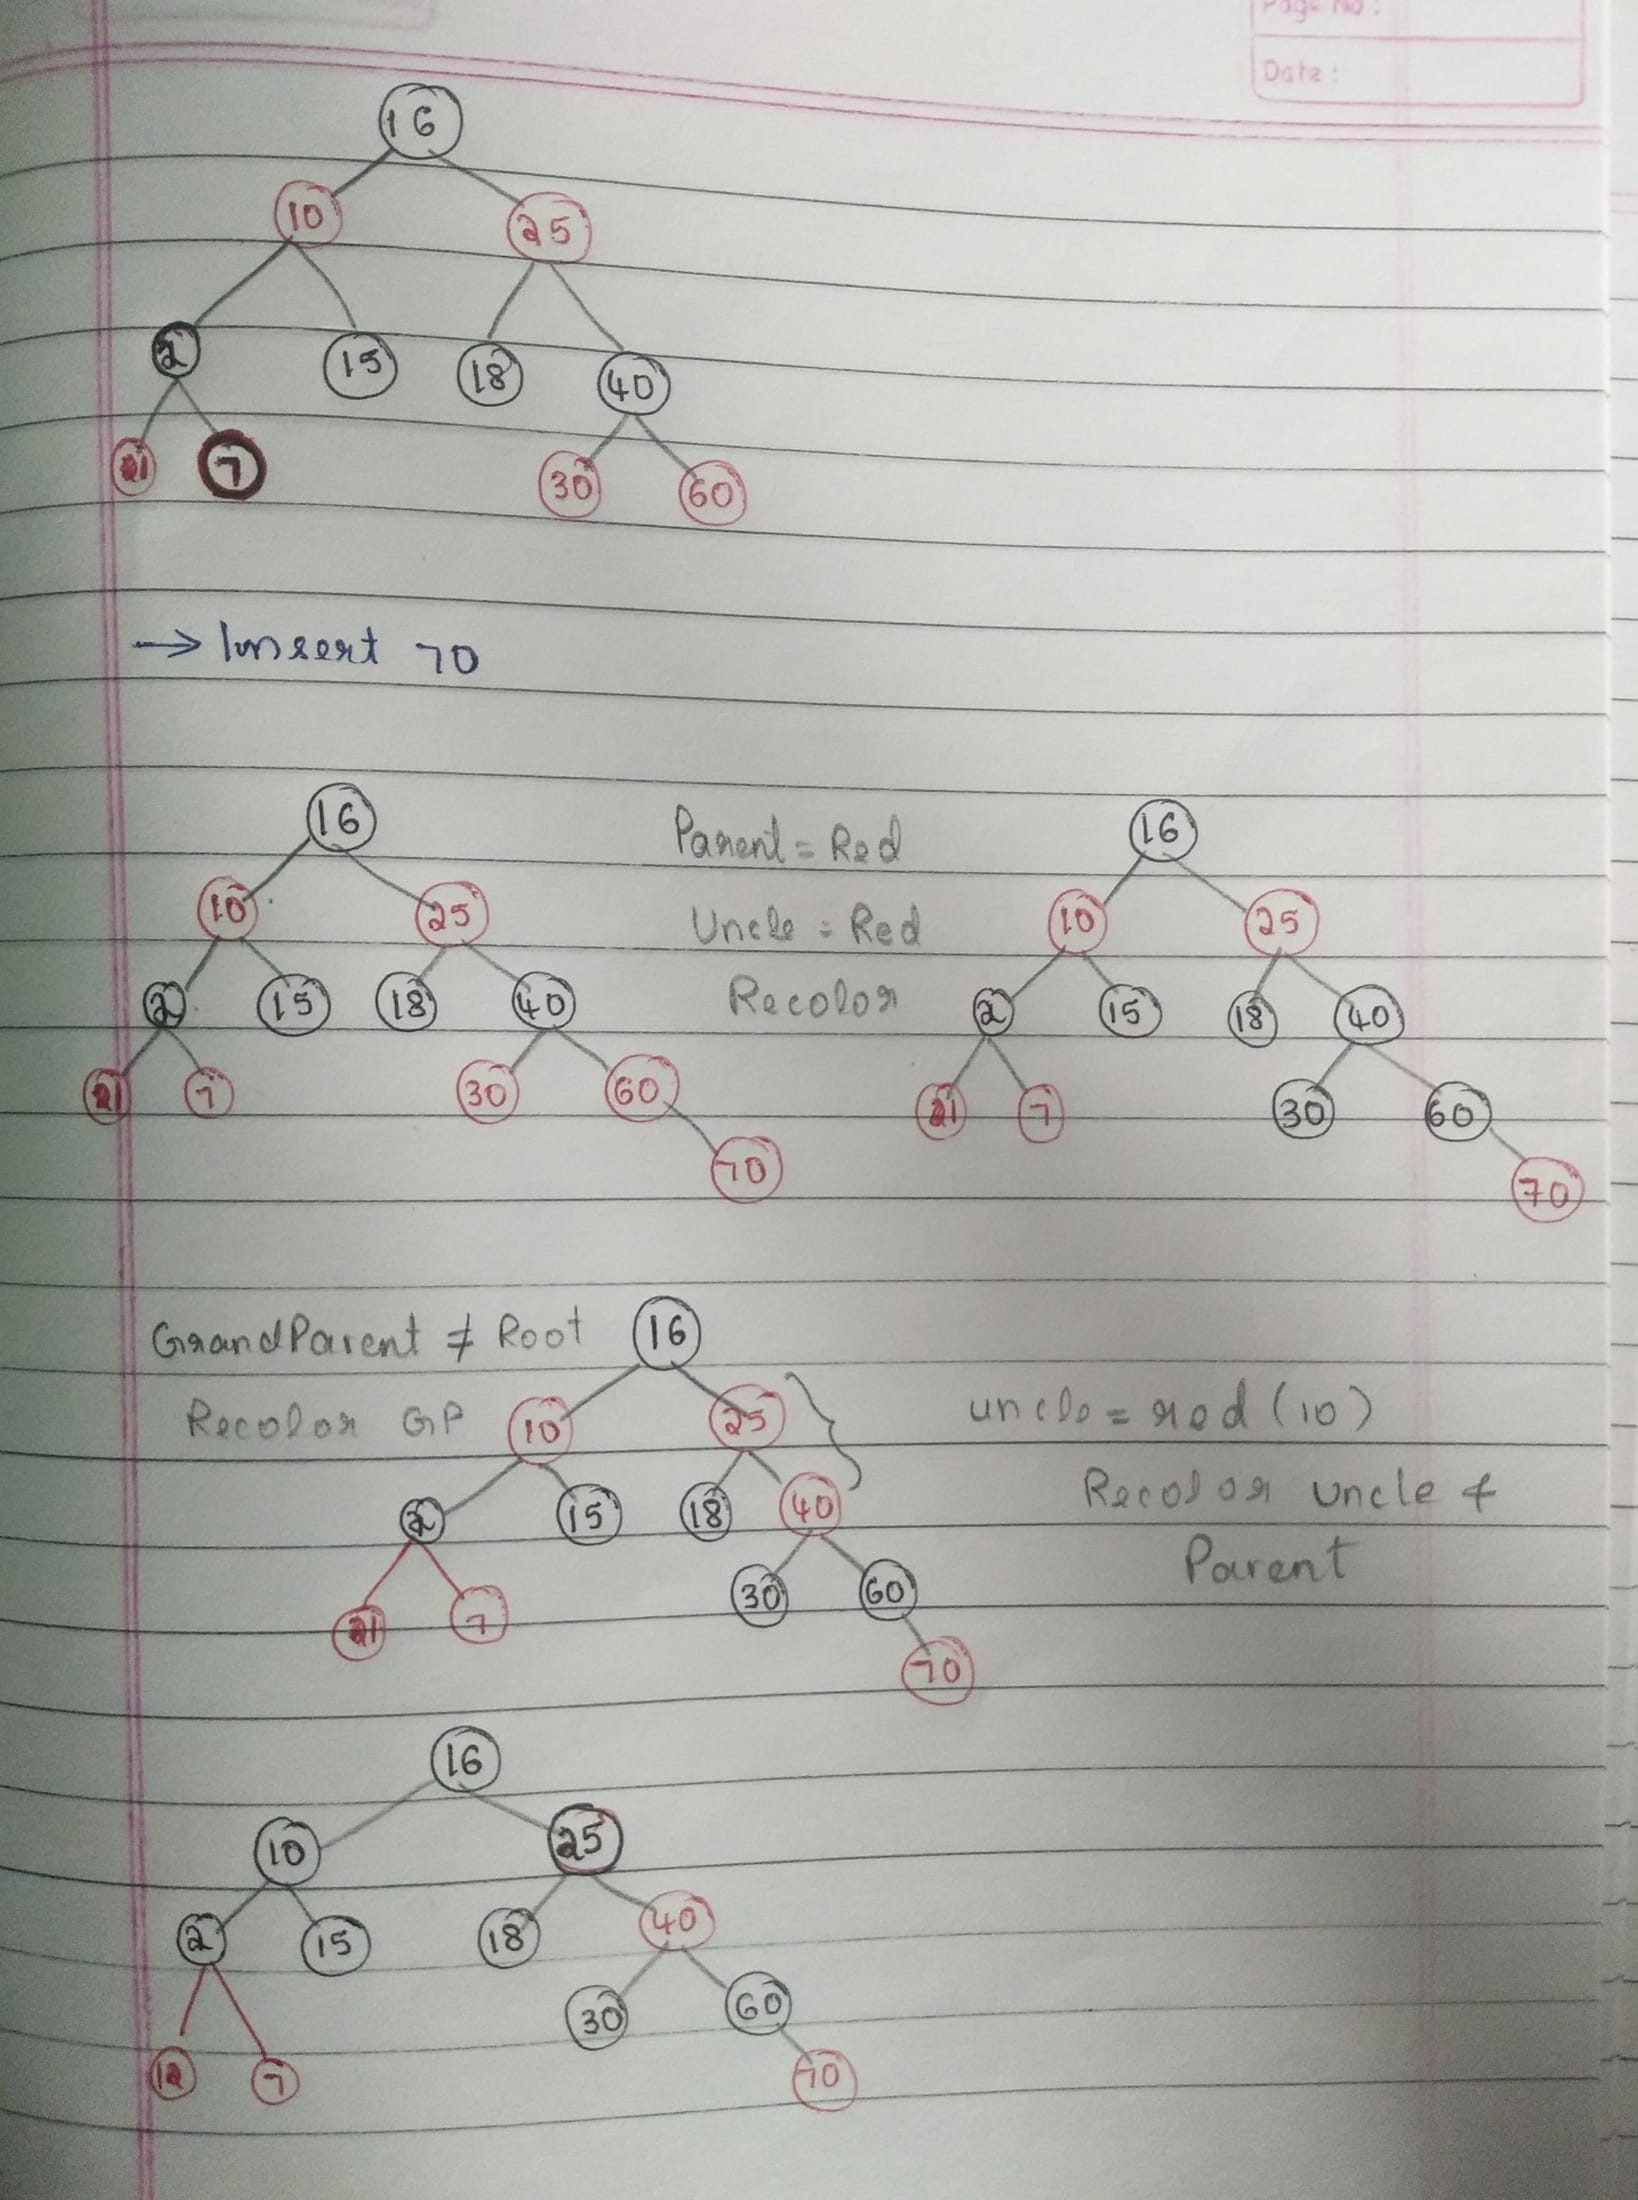 Page No :
Date :
16
10 25
2 15 18 40
7 30 60
→ Insert 70
16
10 25
2 15 18 40
7 30 60
70
Parent = Red
Uncle = Red
Recolor
16
10 25
2 15 18 40
7 30 60
70
GrandParent ≠ Root
Recolor GP
16
10 25
2 15 18 40
7 30 60
70
uncle = red (10)
Recolor uncle &
Parent
16
10 25
2 15 18 40
7 30 60
70